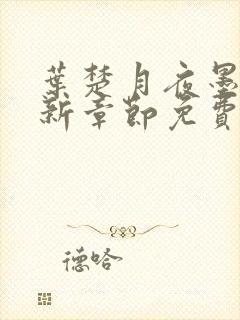 葉楚月夜墨
新章節免費
德哈